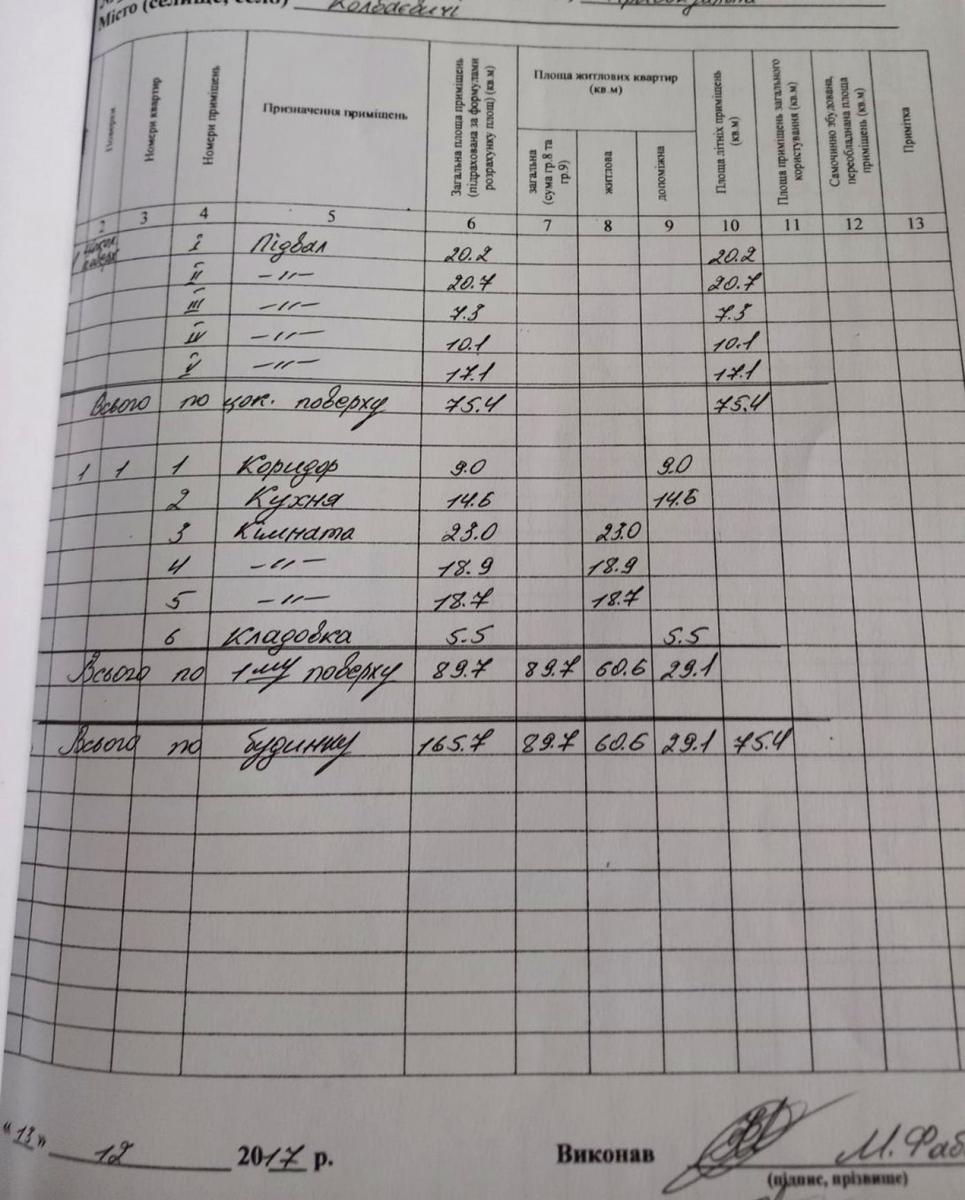 Місто (селище, село) Колбаєвичі
Поверхи
Номери квартир
Номери приміщень
Призначення приміщень
Загальна площа приміщень (підрахована за формулами розрахунку площ) (кв.м)
Площа житлових квартир (кв.м)
загальна (сума гр.8 та гр.9)
житлова
допоміжна
Площа літніх приміщень (кв.м)
Площа приміщень загального користування (кв.м)
Самочинно збудована, переобладнана площа приміщень (кв.м)
Примітка
2 3 4 5 6 7 8 9 10 11 12 13
цокол. поверх I Підвал 20.2 20.2
II -〃- 20.7 20.7
III -〃- 7.3 7.3
IV -〃- 10.1 10.1
V -〃- 17.1 17.1
Всього по цок. поверху 75.4 75.4
1 1 1 Коридор 9.0 9.0
2 Кухня 14.6 14.6
3 Кімната 23.0 23.0
4 -〃- 18.9 18.9
5 -〃- 18.7 18.7
6 Кладовка 5.5 5.5
Всього по 1му поверху 89.7 89.7 60.6 29.1
Всього по будинку 165.7 89.7 60.6 29.1 75.4
"13" 12 2017 р. Виконав М. Фаб
(підпис, прізвище)